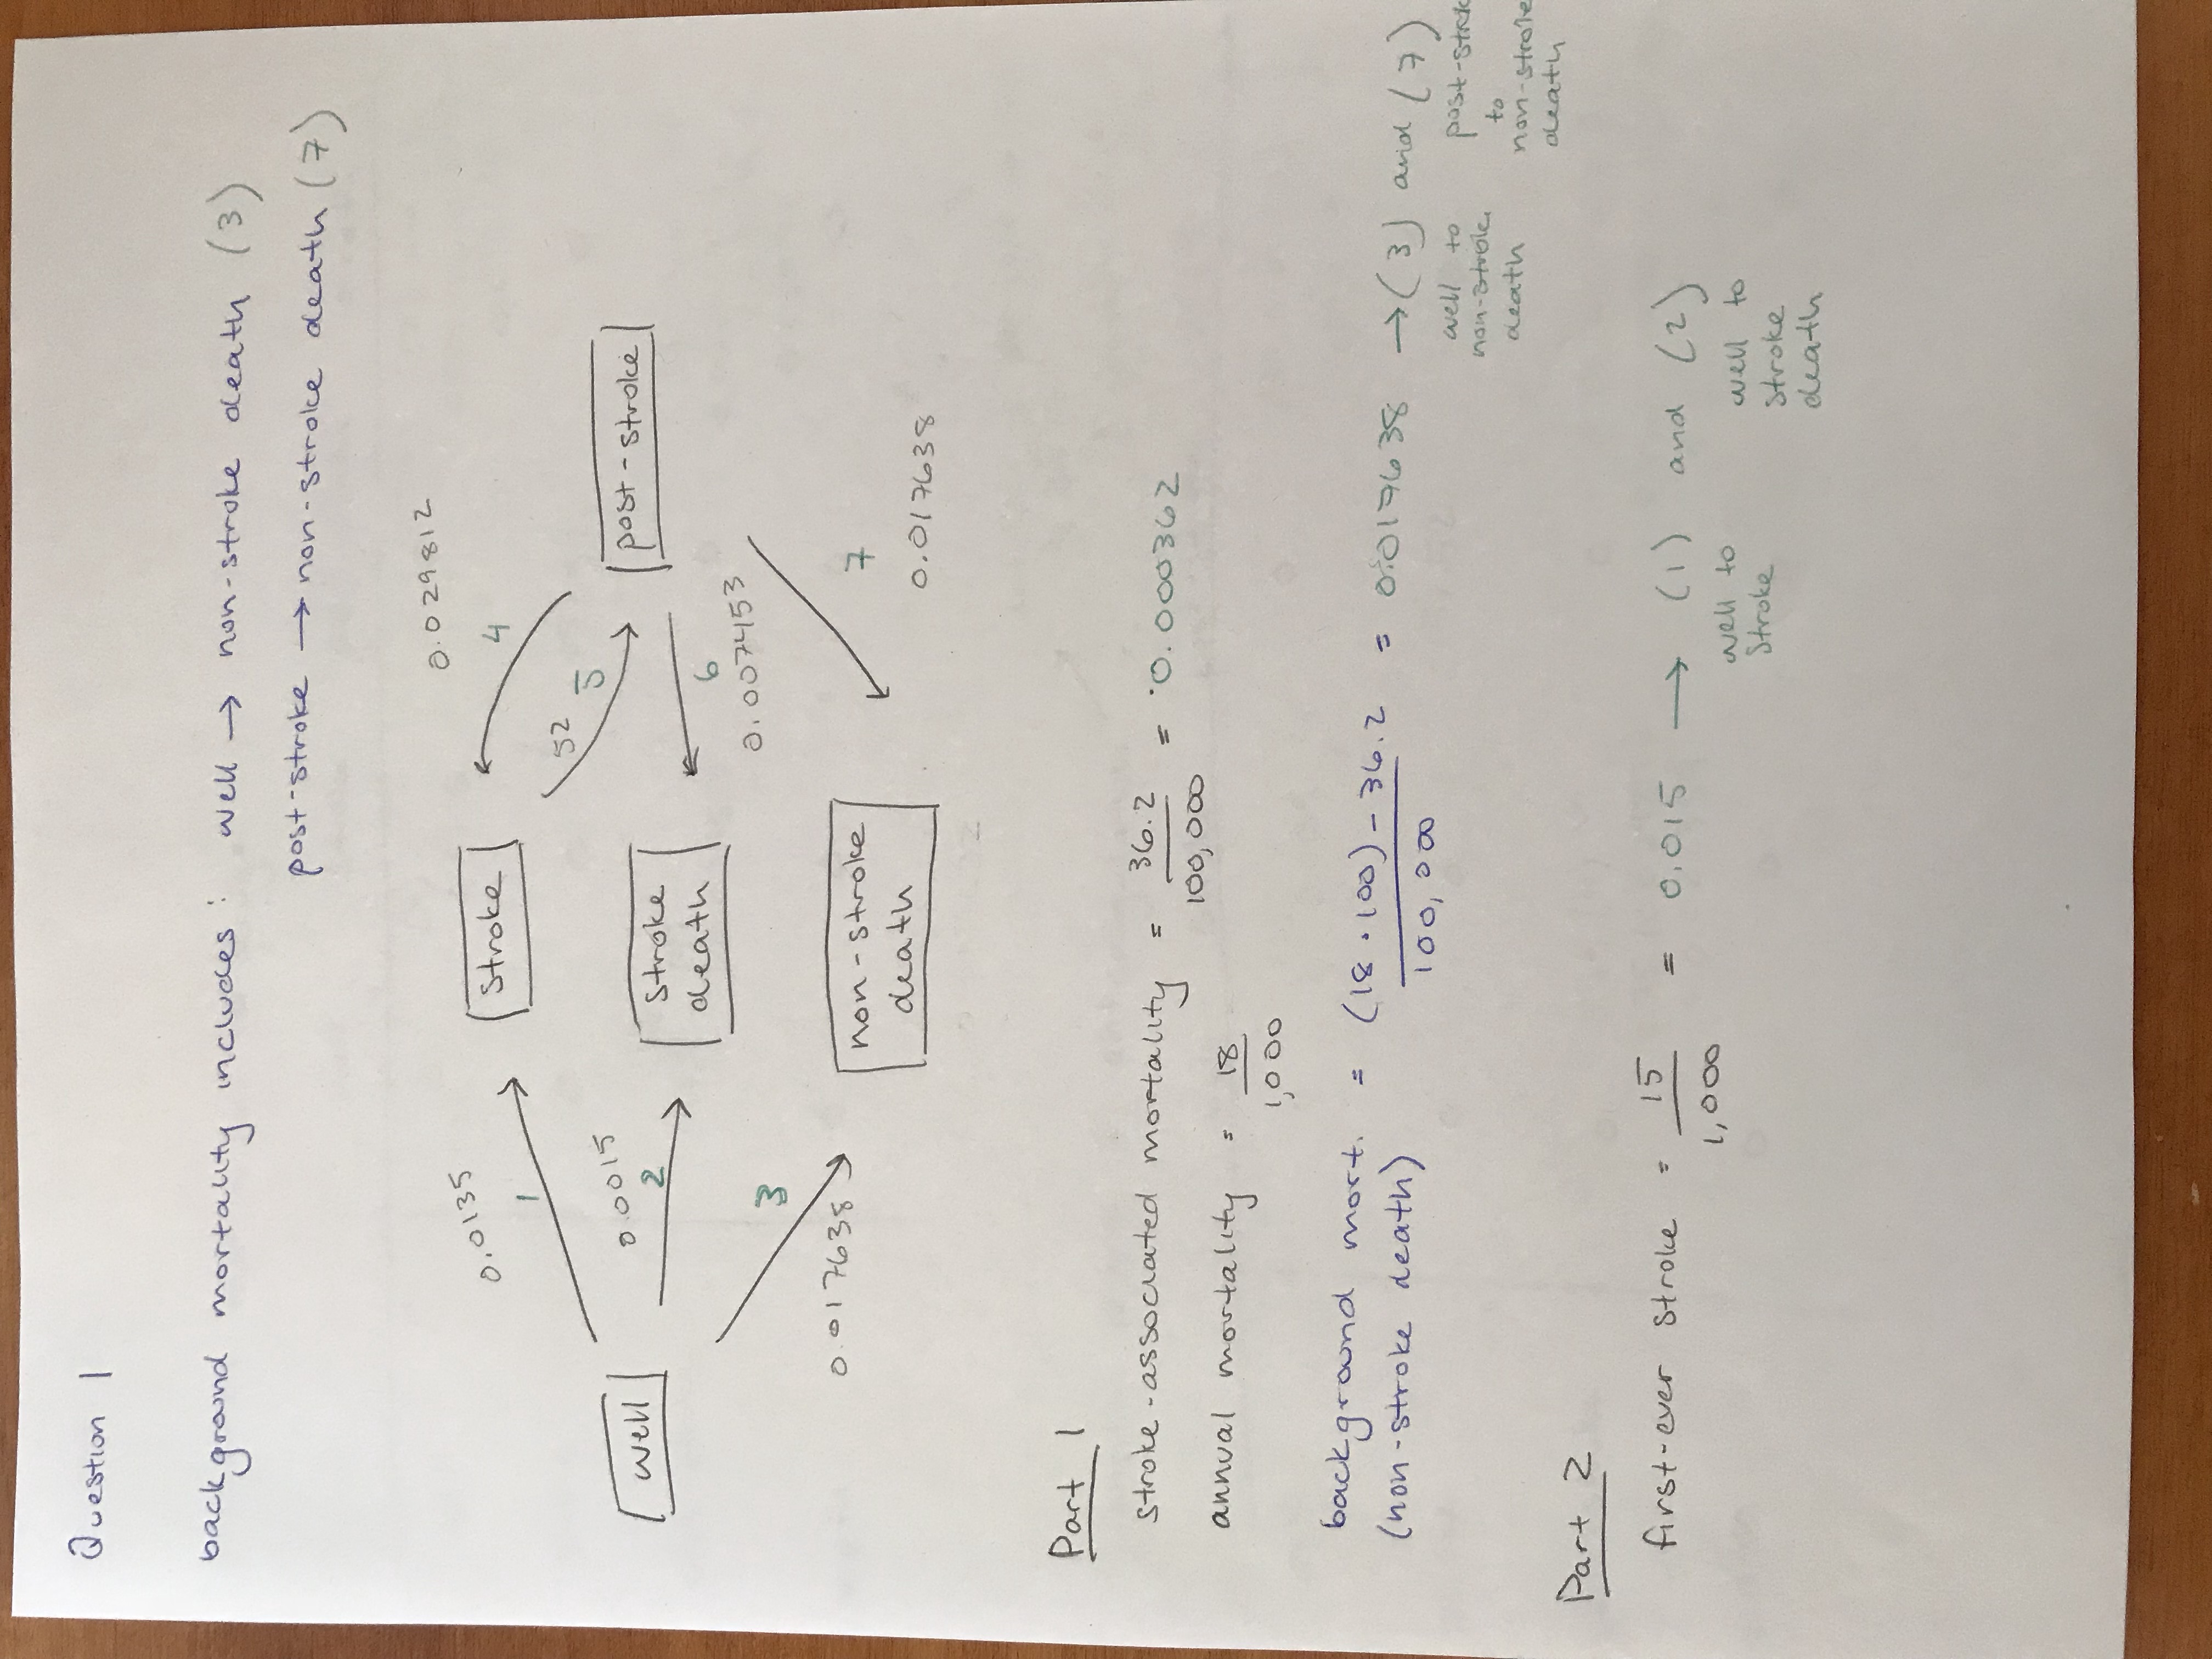 Question 1
background mortality includes: well → non-stroke death (3)
post-stroke → non-stroke death (7)
0.029812
0.0135
stroke
4
1
52
5
0.0015
well
2
post-stroke
stroke
death
6
0.007453
3
0.017638
non-stroke
death
7
0.017638
Part 1
stroke-associated mortality = 36.2 / 100,000 = 0.000362
annual mortality = 18 / 1,000
background mort. = (18 · 100) - 36.2 / 100,000 = 0.017638 → (3) and (7)
(non-stroke death)
well to
non-stroke
death
post-strok
to
non-stroke
death
Part 2
first-ever stroke = 15 / 1,000 = 0.015 → (1) and (2)
well to
stroke
well to
stroke
death